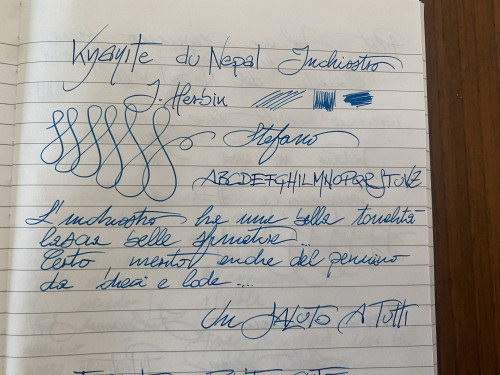 Kyanite du Nepal Inchiostro
J. Herbin
Stefano
ABCDEFGHILMNOPQRSTUVZ
L'inchiostro ha una bella tonalità
lascia belle sfumature...
Certo merito anche del pennino
da e lode....
Un SALUTO A TUTTI